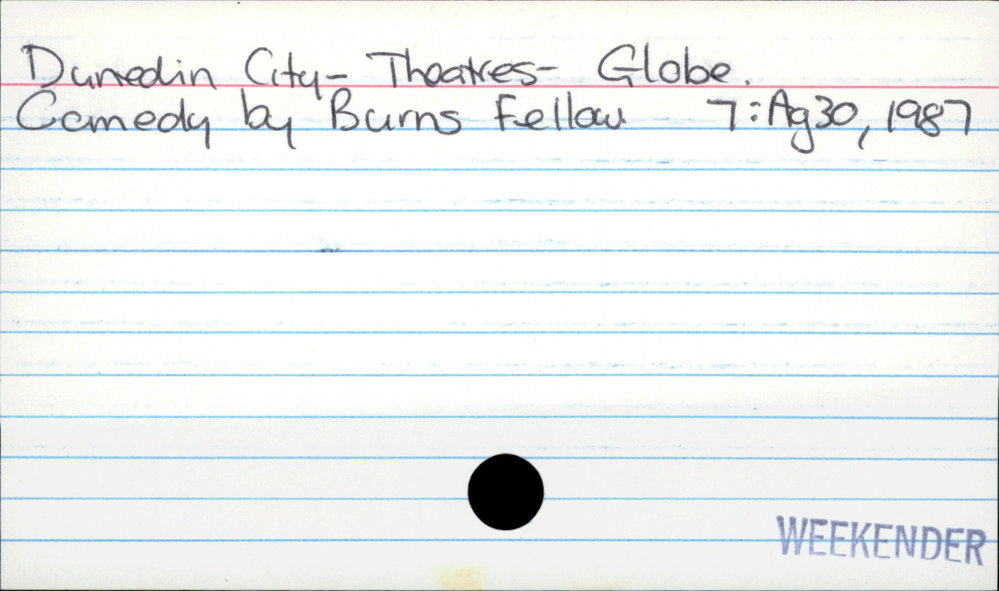 Dunedin City- Theatres- Globe.
Comedy by Burns Fellow 7:Ag30,1987
WEEKENDER